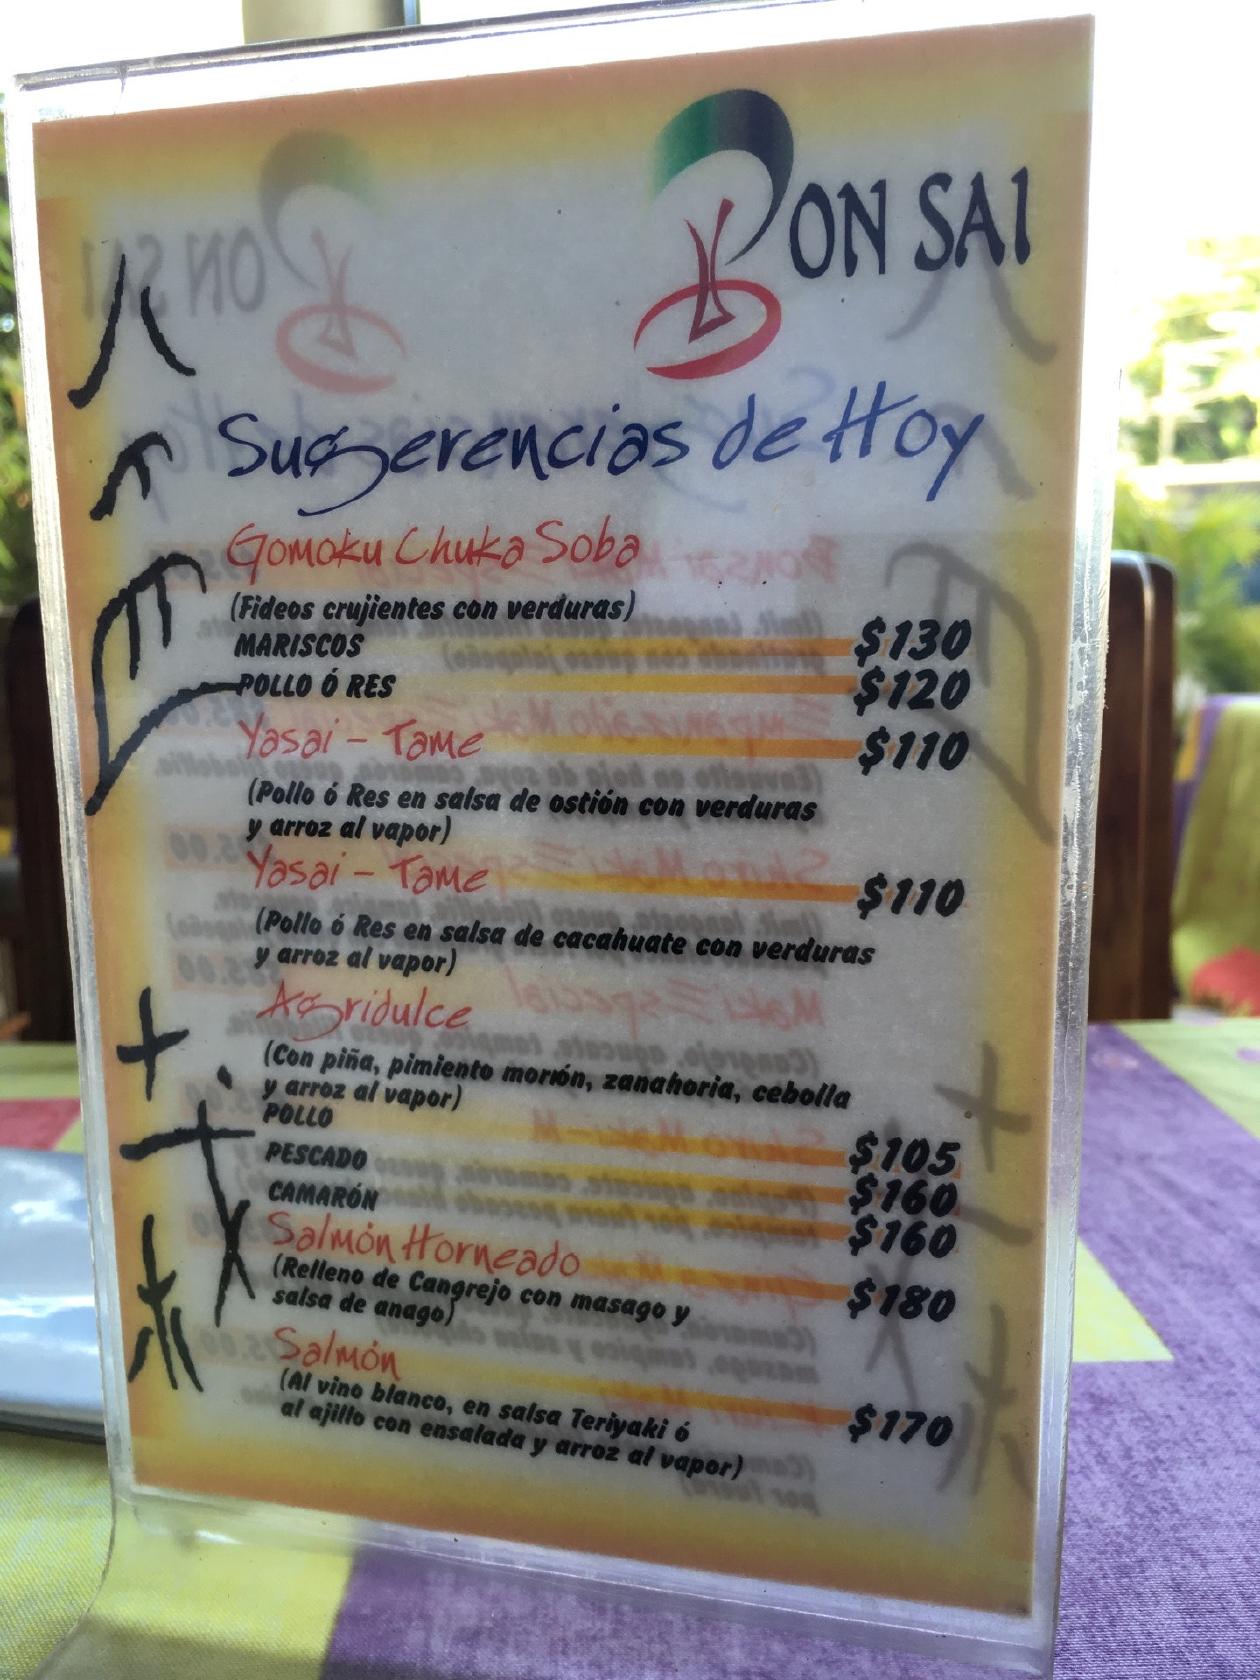 BON SAI
Sugerencias de Hoy
Gomoku Chuka Soba
(Fideos crujientes con verduras)
MARISCOS $130
POLLO Ó RES $120
Yasai - Tame $110
(Pollo ó Res en salsa de ostión con verduras
y arroz al vapor)
Yasai - Tame $110
(Pollo ó Res en salsa de cacahuate con verduras
y arroz al vapor)
Agridulce
(Con piña, pimiento morrón, zanahoria, cebolla
y arroz al vapor)
POLLO $105
PESCADO $160
CAMARÓN $160
Salmón Horneado $180
(Relleno de Cangrejo con masago y
salsa de anago)
Salmón $170
(Al vino blanco, en salsa Teriyaki ó
al ajillo con ensalada y arroz al vapor)